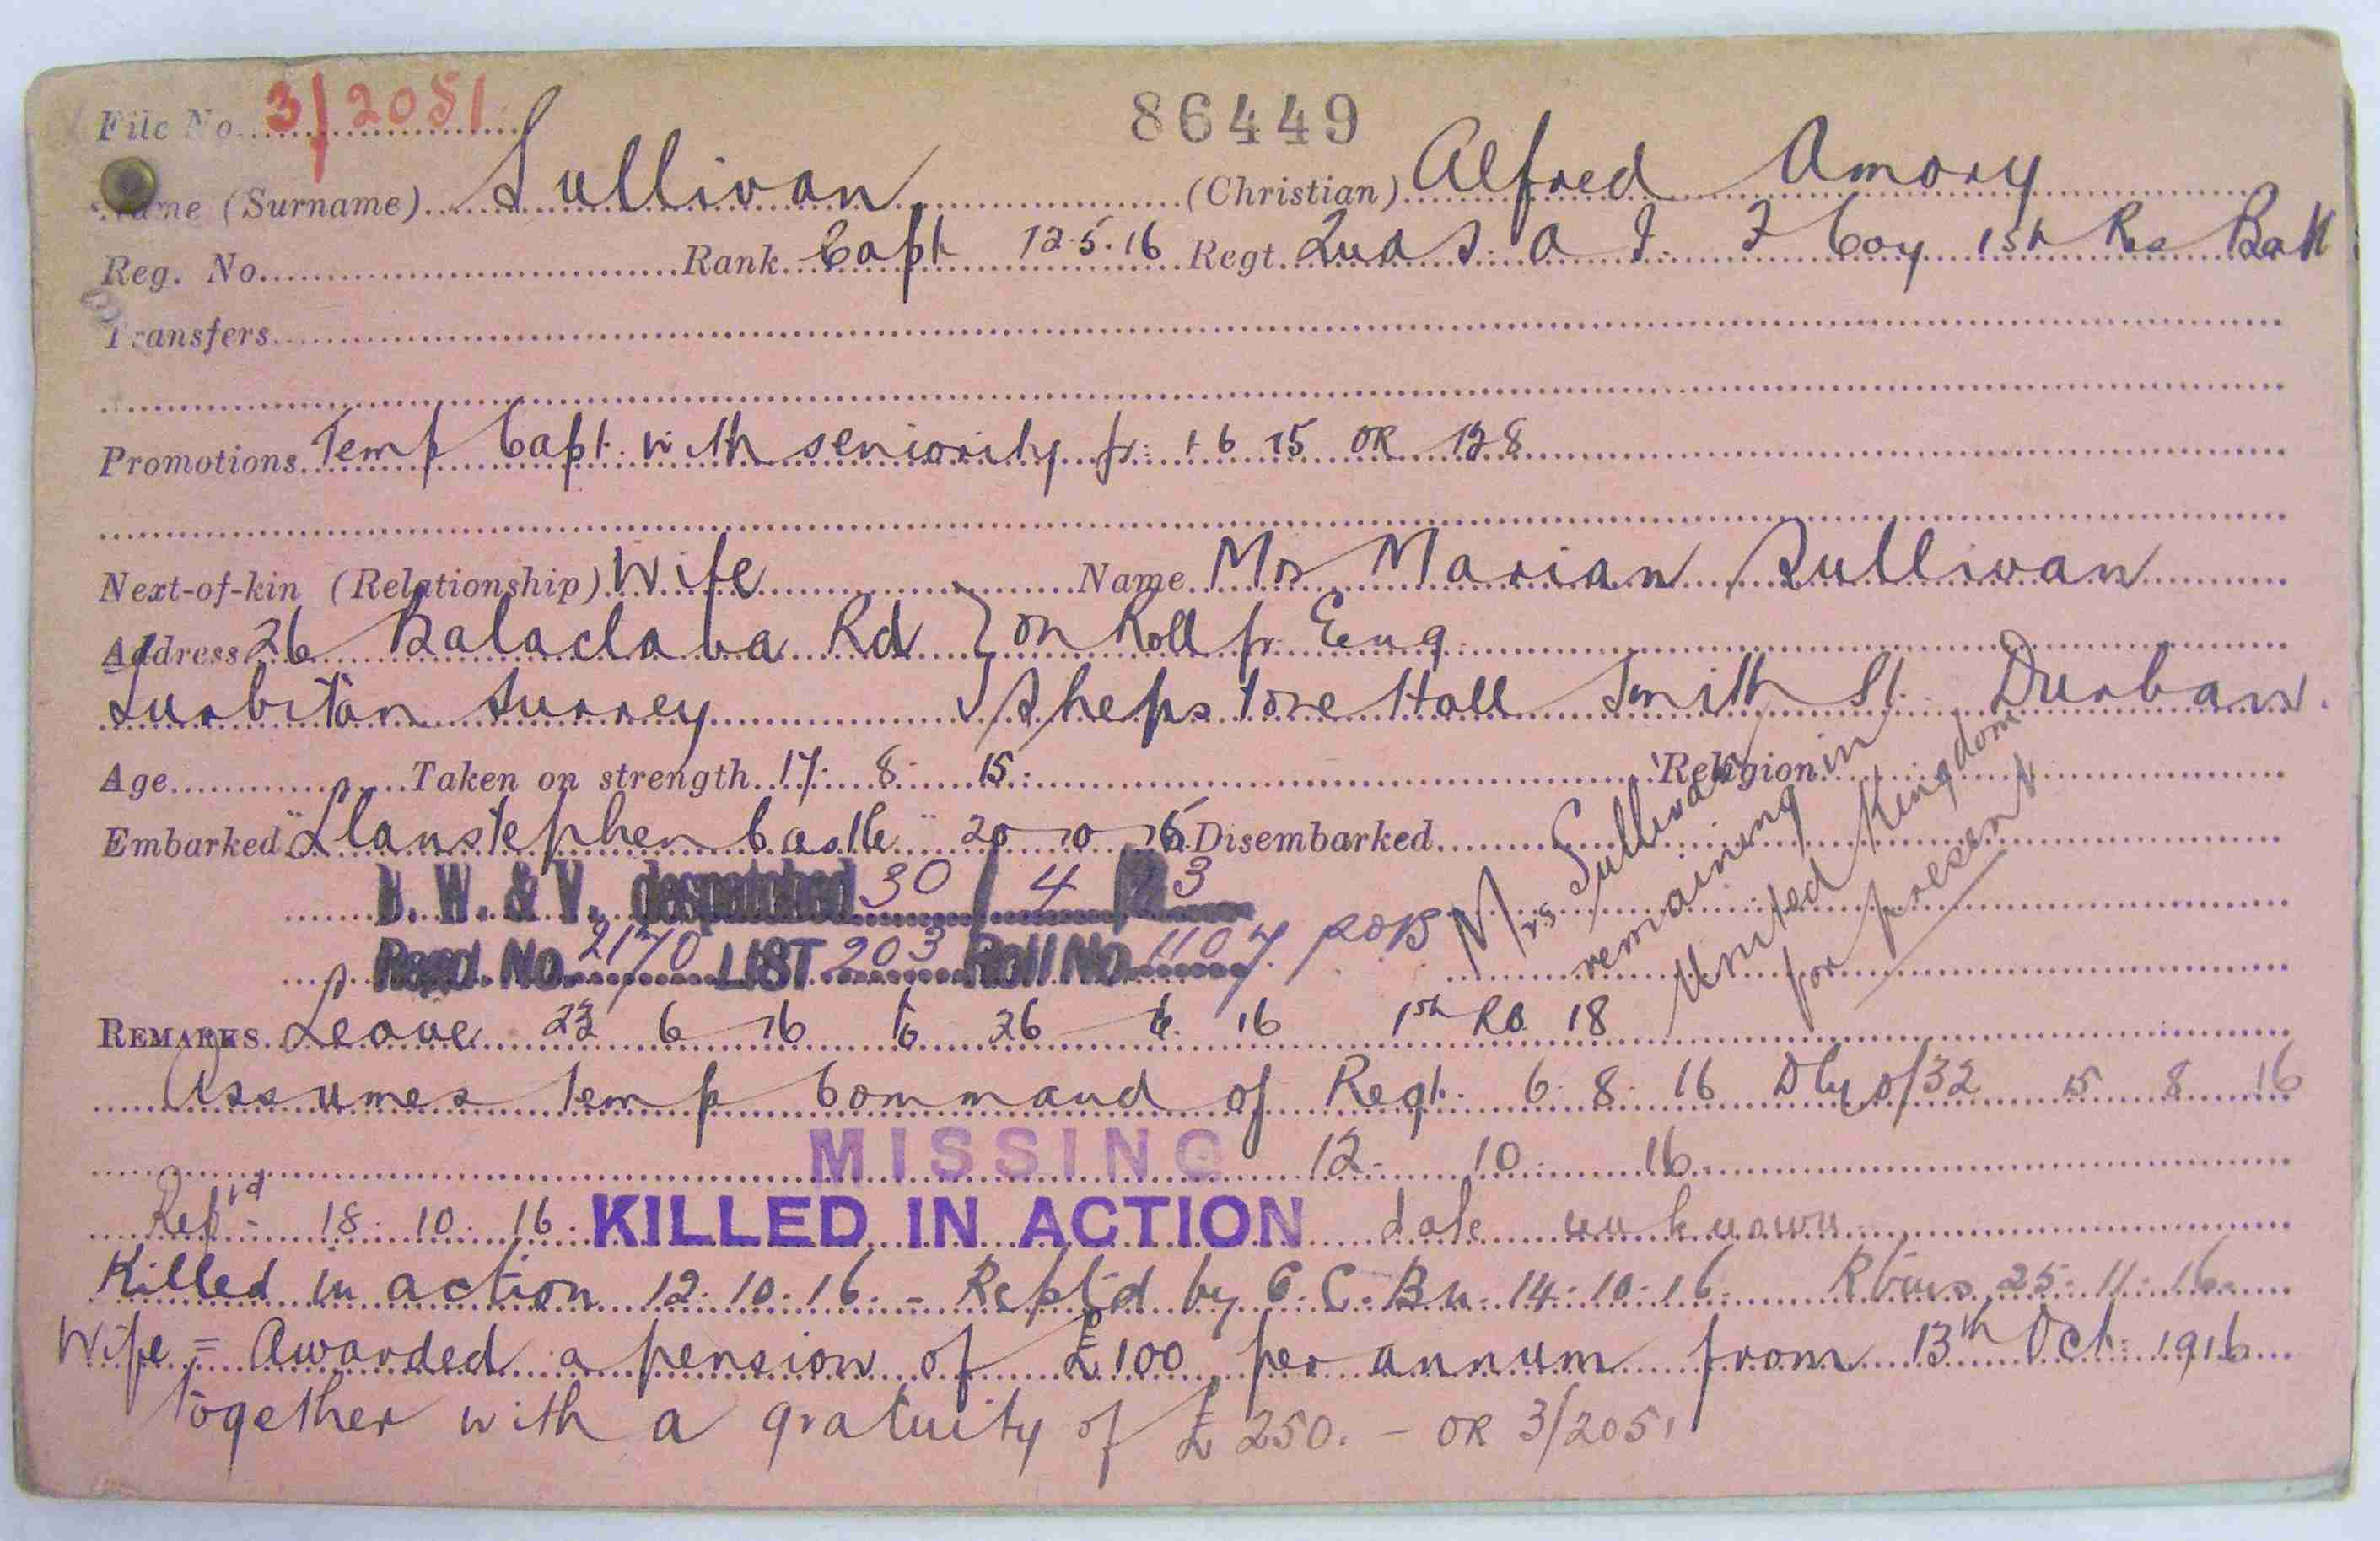 File No. 3/2051
86449
Name (Surname) Sullivan (Christian) Alfred Amory
Reg. No. Rank Capt 12.5.16 Regt. 2nd S. A I. F Coy 1st Res Batt
Transfers
Promotions Temp Capt. with seniority fr: 1 6 15 OR 128
Next-of-kin (Relationship) Wife Name Mrs Marian Sullivan
Address 26 Balaclava Rd } on Roll fr Eng
Surbiton Surrey Shepstone Hall Smith St. Durban.
Age Taken on strength 17. 8. 15. Religion
Embarked "Llanstephen Castle" 20 10 15 Disembarked
B. W. & V. despatched 30/4/23
Regd. No. 2170 LIST 203 Roll No. 1107
Mrs Sullivan remaining in United Kingdom for present
REMARKS. Leave 23 6 16 to 26 6. 16 1st RB 18
Assumes temp Command of Regt. 6. 8. 16 Dly o/32 15 8 16
MISSING 12. 10. 16.
Rep'd 18. 10. 16. KILLED IN ACTION date unknown
Killed in action 12.10.16. - Rept'd by O.C. Bn. 14.10.16. 25.11.16.
Wife = Awarded a pension of £100 per annum from 13th Oct: 1916
together with a gratuity of £250. - OR 3/2051